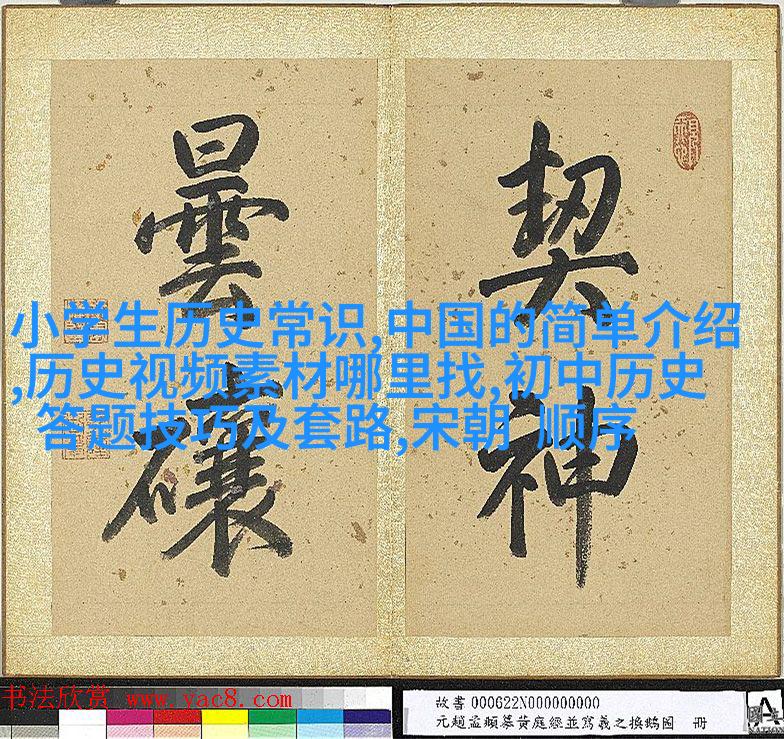 契神
曇
小学生历史常识,中国的简单介绍
,历史视频素材哪里找,初中历史
答题技巧及套路,宋朝 顺序
书法欣赏 www.yac8.com
故書 000622N000000000
元趙孟頫摹黃庭經並寫羲之換鵝圖 冊